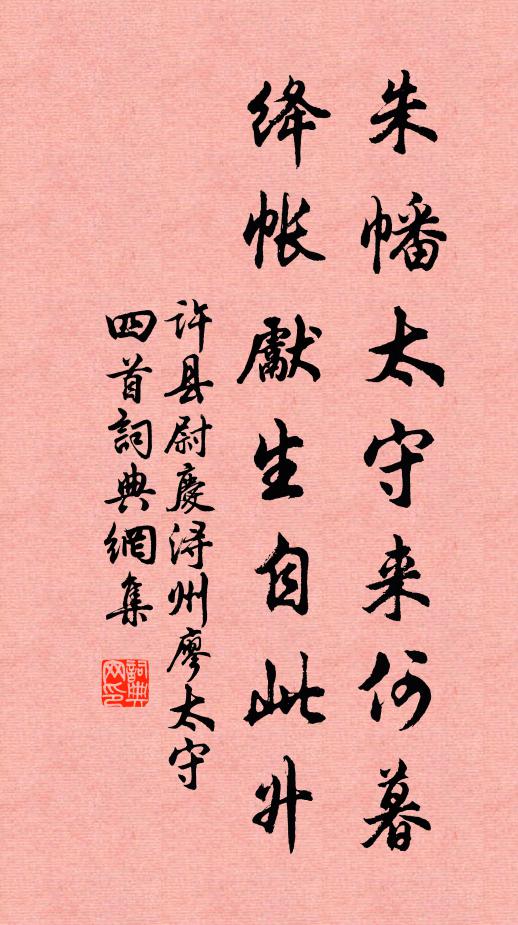 朱幡太守来何暮
绛帐献生自此升
许县尉庆浔州廖太守
四首词典网集
詞典
网印